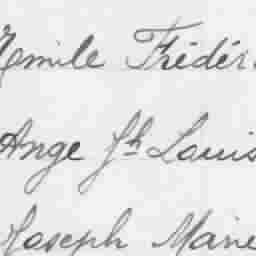 Emile Frédér
Ange Jh Louis
Joseph Marie